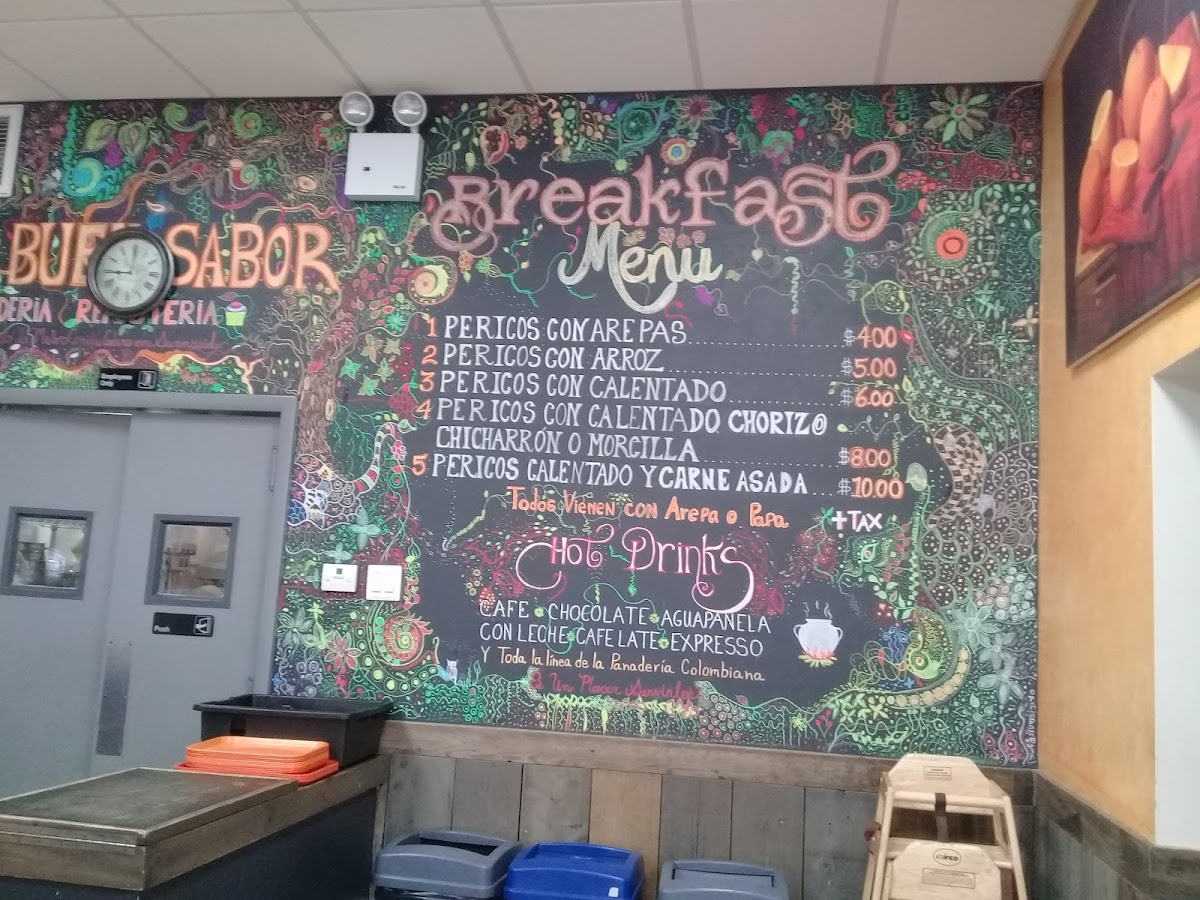 BUEN SABOR
Employees
Only
Push
Breakfast
Menu
1 PERICOS CON AREPAS $4.00
2 PERICOS CON ARROZ $5.00
3 PERICOS CON CALENTADO $6.00
4 PERICOS CON CALENTADO, CHORIZO
CHICHARRÓN O MORCILLA $8.00
5 PERICOS CALENTADO Y CARNE ASADA $10.00
Todos Vienen con Arepa o Papa +TAX
Hot Drinks
CAFE CHOCOLATE AGUAPANELA
CON LECHE CAFE LATE EXPRESSO
Y Toda la línea de la Panadería Colombiana
Un Placer Servirles